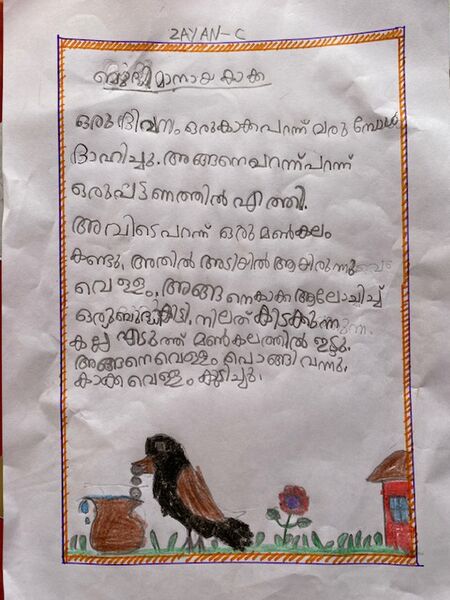 ZAYAN-C
ബുദ്ധിമാനായ കാക്ക
ഒരു ദിവസം ഒരു കാക്ക പറന്ന് വരുമ്പോൾ
ദാഹിച്ചു. അങ്ങനെ പറന്ന് പറന്ന്
ഒരു പട്ടണത്തിൽ എത്തി.
അവിടെ പറന്ന് ഒരു മൺകലം
കണ്ടു. അതിൽ അടിയിൽ ആയിരുന്നു
വെള്ളം. അങ്ങനെ കാക്ക ആലോചിച്ച്
ഒരു ബുദ്ധി കിട്ടി. നിലത് കിടക്കുന്ന
കല്ല് എടുത്ത് മൺകലത്തിൽ ഇട്ടു.
അങ്ങനെ വെള്ളം പൊങ്ങി വന്നു.
കാക്ക വെള്ളം കുടിച്ചു.